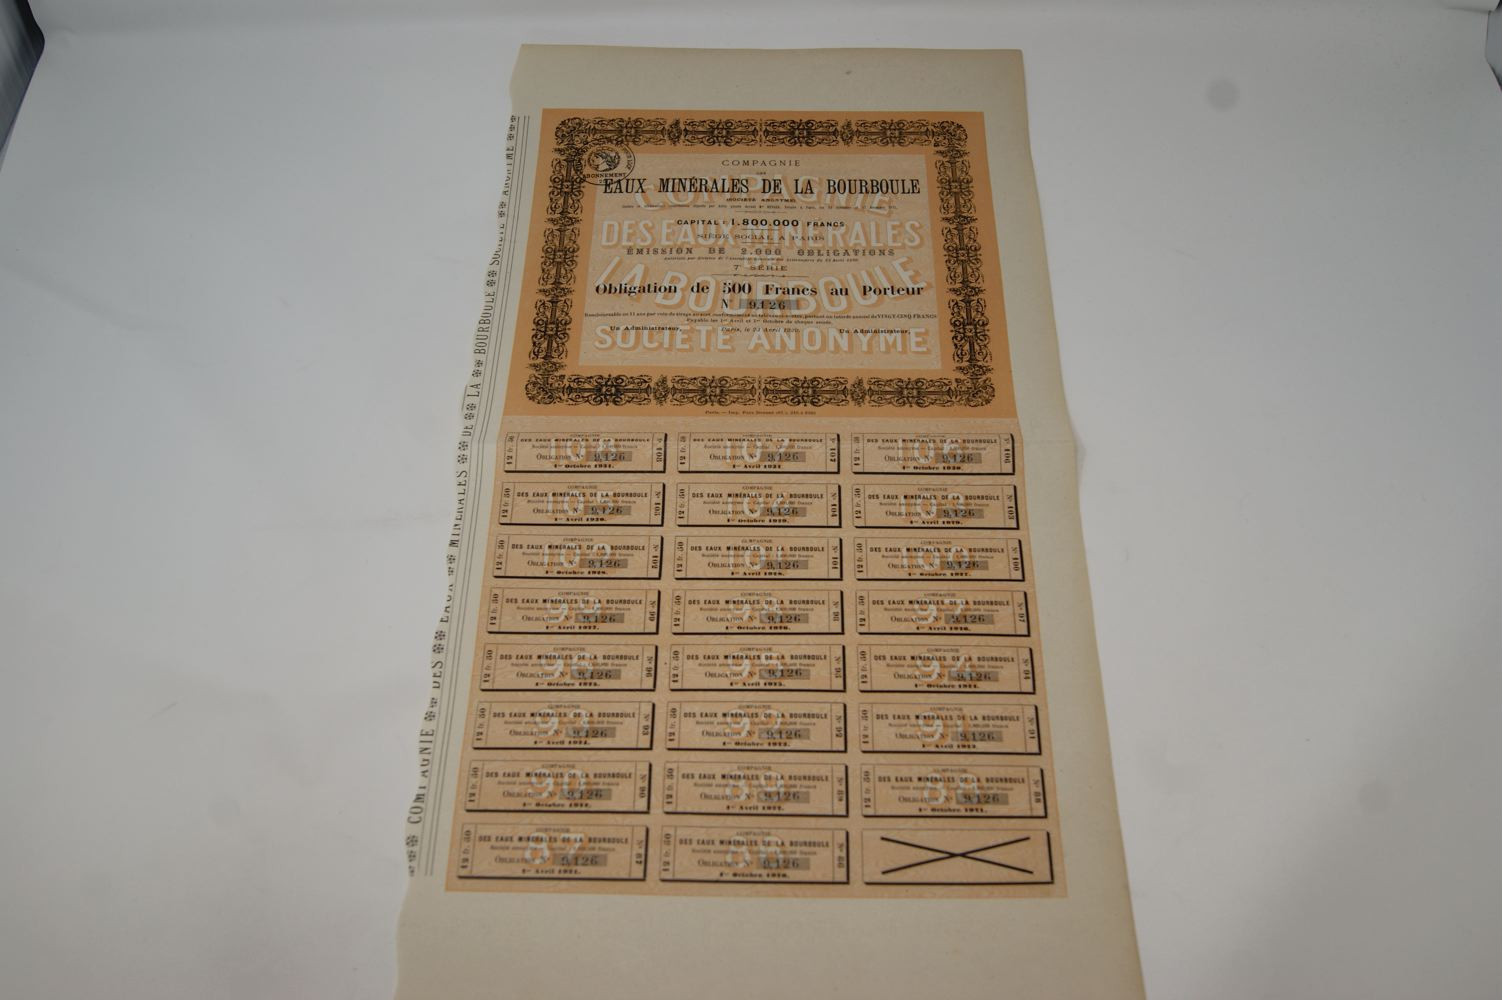 COMPAGNIE
DES
EAUX MINÉRALES DE LA BOURBOULE
(SOCIÉTÉ ANONYME)
CAPITAL : 1.800.000 FRANCS
SIÈGE SOCIAL A PARIS
ÉMISSION DE 2.000 OBLIGATIONS
7e SÉRIE
Obligation de 500 Francs au Porteur
No 9,126
Payable les 1er Avril et 1er Octobre de chaque année.
Un Administrateur, Paris, le 23 Avril 1920. Un Administrateur,
COMPAGNIE
DES EAUX MINÉRALES
DE
LA BOURBOULE
SOCIÉTÉ ANONYME
ABONNEMENT
COMPAGNIE DES EAUX MINÉRALES DE LA BOURBOULE SOCIÉTÉ ANONYME
COMPAGNIE
DES EAUX MINÉRALES DE LA BOURBOULE
Société anonyme — Capital : 1,800,000 francs
OBLIGATION No 9,126
1er Octobre 1931.
12 fr. 50
No 108
COMPAGNIE
DES EAUX MINÉRALES DE LA BOURBOULE
Société anonyme — Capital : 1,800,000 francs
OBLIGATION No 9,126
1er Avril 1931
12 fr. 50
No 107
COMPAGNIE
DES EAUX MINÉRALES DE LA BOURBOULE
Société anonyme — Capital : 1,800,000 francs
OBLIGATION No 9,126
1er Octobre 1930.
12 fr. 50
No 106
COMPAGNIE
DES EAUX MINÉRALES DE LA BOURBOULE
OBLIGATION No 9,126
1er Avril 1930.
12 fr. 50
No 105
COMPAGNIE
DES EAUX MINÉRALES DE LA BOURBOULE
OBLIGATION No 9,126
1er Octobre 1929.
12 fr. 50
No 104
COMPAGNIE
DES EAUX MINÉRALES DE LA BOURBOULE
OBLIGATION No 9,126
1er Avril 1929.
12 fr. 50
No 103
COMPAGNIE
DES EAUX MINÉRALES DE LA BOURBOULE
OBLIGATION No 9,126
1er Octobre 1928.
12 fr. 50
No 102
COMPAGNIE
DES EAUX MINÉRALES DE LA BOURBOULE
OBLIGATION No 9,126
1er Avril 1928.
12 fr. 50
No 101
COMPAGNIE
DES EAUX MINÉRALES DE LA BOURBOULE
OBLIGATION No 9,126
1er Octobre 1927.
12 fr. 50
No 100
COMPAGNIE
DES EAUX MINÉRALES DE LA BOURBOULE
OBLIGATION No 9,126
1er Avril 1927.
12 fr. 50
No 99
COMPAGNIE
DES EAUX MINÉRALES DE LA BOURBOULE
OBLIGATION No 9,126
1er Octobre 1926.
12 fr. 50
No 98
COMPAGNIE
DES EAUX MINÉRALES DE LA BOURBOULE
OBLIGATION No 9,126
1er Avril 1926.
12 fr. 50
No 97
COMPAGNIE
DES EAUX MINÉRALES DE LA BOURBOULE
OBLIGATION No 9,126
1er Octobre 1925.
12 fr. 50
No 96
COMPAGNIE
DES EAUX MINÉRALES DE LA BOURBOULE
OBLIGATION No 9,126
1er Avril 1925.
12 fr. 50
No 95
COMPAGNIE
DES EAUX MINÉRALES DE LA BOURBOULE
OBLIGATION No 9,126
1er Octobre 1924.
12 fr. 50
No 94
COMPAGNIE
DES EAUX MINÉRALES DE LA BOURBOULE
OBLIGATION No 9,126
1er Avril 1924.
12 fr. 50
No 93
COMPAGNIE
DES EAUX MINÉRALES DE LA BOURBOULE
OBLIGATION No 9,126
1er Octobre 1923.
12 fr. 50
No 92
COMPAGNIE
DES EAUX MINÉRALES DE LA BOURBOULE
OBLIGATION No 9,126
1er Avril 1923.
12 fr. 50
No 91
COMPAGNIE
DES EAUX MINÉRALES DE LA BOURBOULE
OBLIGATION No 9,126
1er Octobre 1922.
12 fr. 50
No 90
COMPAGNIE
DES EAUX MINÉRALES DE LA BOURBOULE
OBLIGATION No 9,126
1er Avril 1922.
12 fr. 50
No 89
COMPAGNIE
DES EAUX MINÉRALES DE LA BOURBOULE
OBLIGATION No 9,126
1er Octobre 1921.
12 fr. 50
No 88
COMPAGNIE
DES EAUX MINÉRALES DE LA BOURBOULE
OBLIGATION No 9,126
1er Avril 1921.
12 fr. 50
No 87
COMPAGNIE
DES EAUX MINÉRALES DE LA BOURBOULE
OBLIGATION No 9,126
1er Octobre 1920.
12 fr. 50
No 86